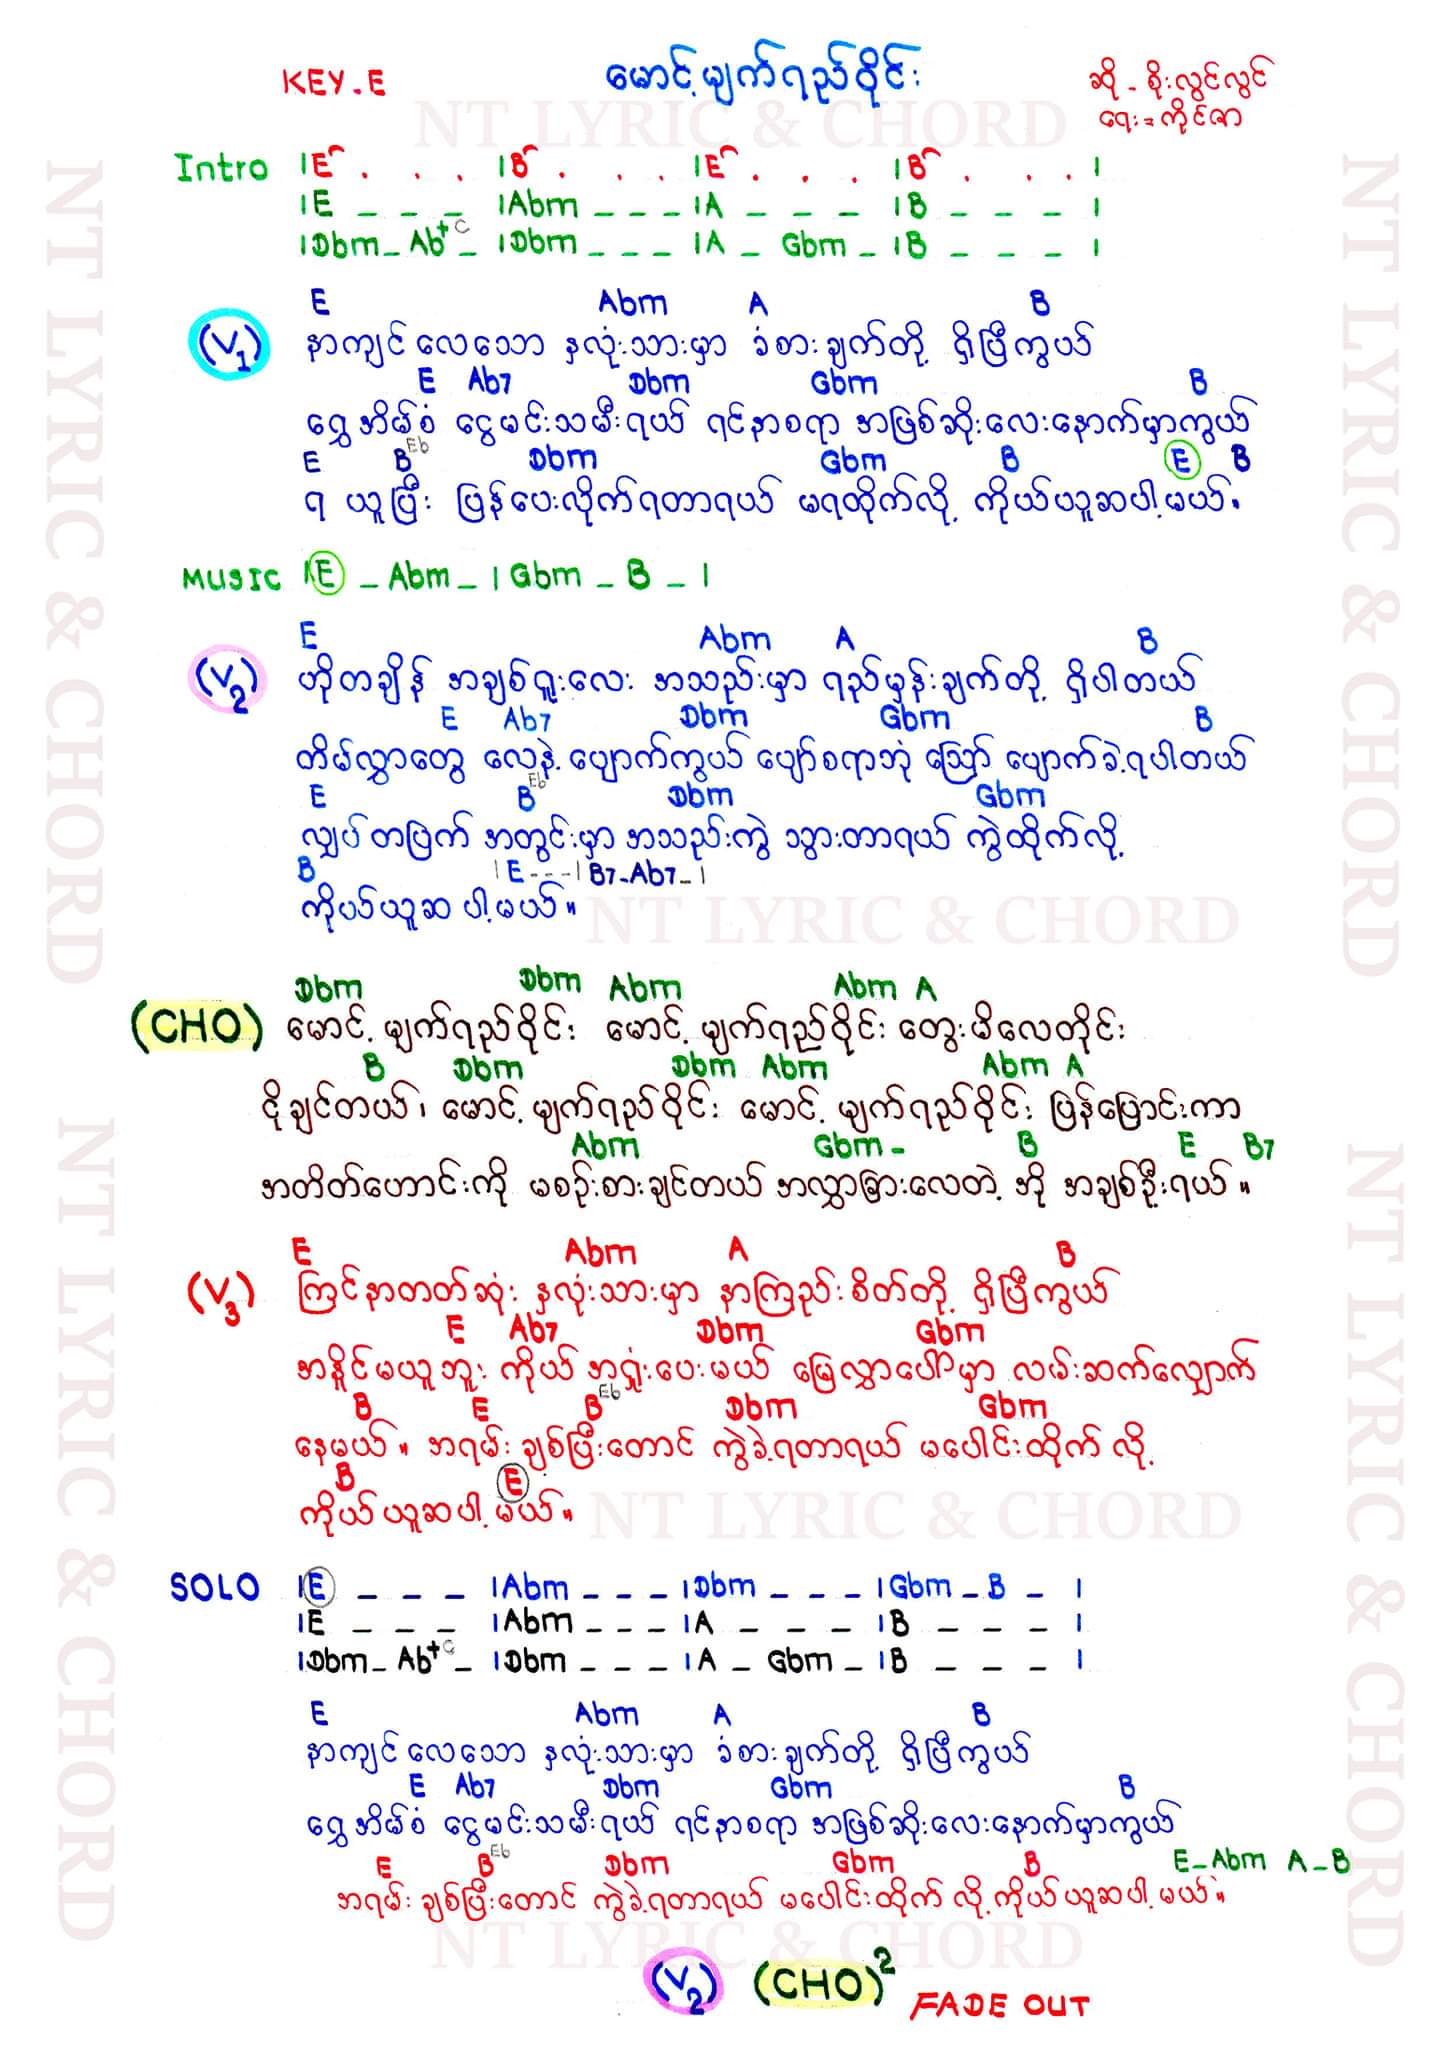 KEY.E မောင့်မျက်ရည်ဝိုင်း ဆို - စိုးလွင်လွင်
ရေး = ကိုင်ဇာ
NT LYRIC & CHORD
Intro |E . . . |B . . . |E . . . |B . . . |
|E _ _ _ |Abm _ _ _ |A _ _ _ |B _ _ _ |
|Dbm _ Ab+C _ |Dbm _ _ _ |A _ Gbm _ |B _ _ _ |
E Abm A B
(V1) နာကျင်လေသော နှလုံးသားမှာ ခံစားချက်တို့ ရှိပြီကွယ်
E Ab7 Dbm Gbm B
ရွှေအိမ်စံ ငွေမင်းသမီးရယ် ရင်နာစရာ အဖြစ်ဆိုးလေးနောက်မှာကွယ်
E B Eb Dbm Gbm B E B
ရ ယူပြီး ပြန်ပေးလိုက်ရတာရယ် မရထိုက်လို့ ကိုယ်ယူဆပါ့မယ်။
MUSIC |E _ Abm _ | Gbm _ B _ |
E Abm A B
(V2) ဟိုတချိန် အချစ်ရူးလေး အသည်းမှာ ရည်မှန်းချက်တို့ ရှိပါတယ်
E Ab7 Dbm Gbm B
တိမ်လွှာတွေ လေနဲ့ ပျောက်ကွယ် ပျော်စရာဘုံ ဪ ပျောက်ခဲ့ရပါတယ်
E B Eb Dbm Gbm
လျှပ်တပြက် အတွင်းမှာ အသည်းကွဲ သွားတာရယ် ကွဲထိုက်လို့
B | E - - - | B7 _ Ab7 _ |
ကိုယ်ယူဆ ပါ့မယ်။
NT LYRIC & CHORD
Dbm Dbm Abm Abm A
(CHO) မောင့် မျက်ရည်ဝိုင်း မောင့် မျက်ရည်ဝိုင်း တွေးမိလေတိုင်း
B Dbm Dbm Abm Abm A
ငိုချင်တယ်၊ မောင့် မျက်ရည်ဝိုင်း မောင့် မျက်ရည်ဝိုင်း ပြန်ပြောင်းကာ
Abm Gbm - B E B7
အတိတ်ဟောင်းကို မစဉ်းစားချင်တယ် အလွှာခြားလေတဲ့ အို အချစ်ဦးရယ်။
E Abm A B
(V3) ကြင်နာတတ်ဆုံး နှလုံးသားမှာ နာကြည်းစိတ်တို့ ရှိပြီကွယ်
E Ab7 Dbm Gbm
အနိူင်မယူဘူး ကိုယ် အရှုံးပေးမယ် မြေလွှာပေါ်မှာ လမ်းဆက်လျှောက်
B E B Eb Dbm Gbm
နေမယ်။ အရမ်းချစ်ပြီးတောင် ကွဲခဲ့ရတာရယ် မပေါင်းထိုက် လို့
B E
ကိုယ်ယူဆပါ့မယ်။
NT LYRIC & CHORD
SOLO |E _ _ _ |Abm _ _ _ |Dbm _ _ _ |Gbm _ B _ |
|E _ _ _ |Abm _ _ _ |A _ _ _ |B _ _ _ |
|Dbm _ Ab+C _ |Dbm _ _ _ |A _ Gbm _ |B _ _ _ |
E Abm A B
နာကျင်လေသော နှလုံးသားမှာ ခံစားချက်တို့ ရှိပြီကွယ်
E Ab7 Dbm Gbm B
ရွှေအိမ်စံ ငွေမင်းသမီးရယ် ရင်နာစရာ အဖြစ်ဆိုးလေးနောက်မှာကွယ်
E B Eb Dbm Gbm B E _ Abm A _ B
အရမ်းချစ်ပြီးတောင် ကွဲခဲ့ရတာရယ် မပေါင်းထိုက် လို့ ကိုယ်ယူဆပါ့မယ်။
NT LYRIC & CHORD
(V2) (CHO)2 FADE OUT
NT LYRIC & CHORD
NT LYRIC & CHORD
NT LYRIC & CHORD
NT LYRIC & CHORD